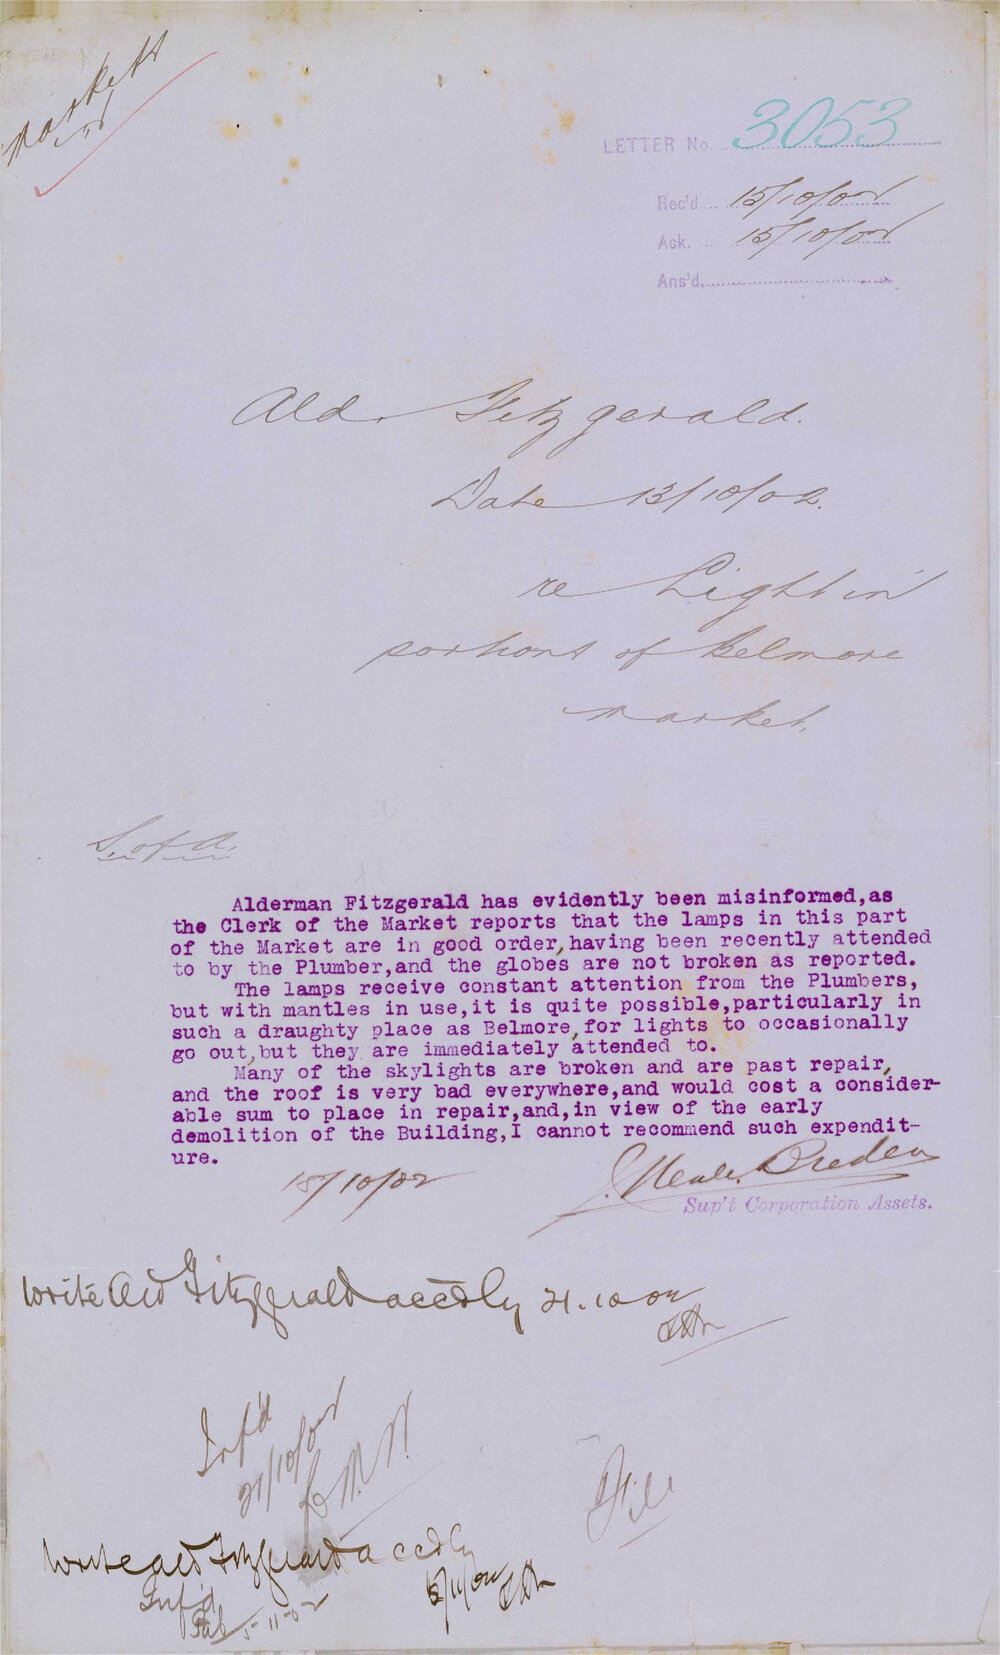 Markets
LETTER No. 3053
Rec'd 15/10/02
Ack. 15/10/02
Ans'd
Ald. Fitzgerald.
Date 13/10/02.
re Light in
portions of Belmore
Market.
S. of A.
Alderman Fitzgerald has evidently been misinformed,as
the Clerk of the Market reports that the lamps in this part
of the Market are in good order,having been recently attended
to by the Plumber,and the globes are not broken as reported.
The lamps receive constant attention from the Plumbers,
but with mantles in use,it is quite possible,particularly in
such a draughty place as Belmore,for lights to occasionally
go out,but they are immediately attended to.
Many of the skylights are broken and are past repair,
and the roof is very bad everywhere,and would cost a consider-
able sum to place in repair,and,in view of the early
demolition of the Building,I cannot recommend such expendit-
ure.
18/10/02
Neale Breden
Sup't Corporation Assets.
Write Ald Fitzgerald accdly 21.10.02
Inf'd
21/10/02
File
Write Ald Fitzgerald accdly
5/11/02
Inf'd
5-11-02